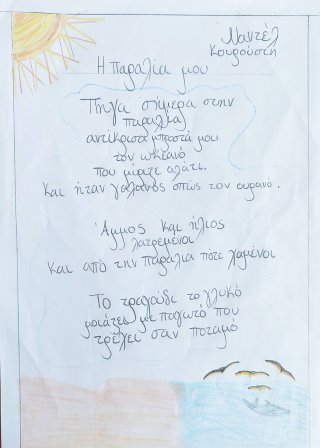 Ναντέλ
Κουρούσιη
Η παραλία μου
Πήγα σήμερα στην
παραλία
αντίκρισα μπροστά μου
τον ωκεανό
που μύριζε αλάτι.
Και ήταν γαλανός όπως τον ουρανό.
Άμμος και ήλιος
λατρεμένοι
Και από την παραλία ποτέ χαμένοι
Το τραγούδι το γλυκό
μοιάζει με παγωτό που
τρέχει σαν ποταμό